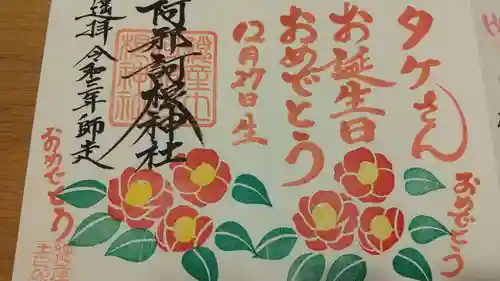 おめでとう
タケさん
お誕生日
おめでとう
12月27日生
阿邪訶根神社
遥拝 令和二年師走
おめでとう